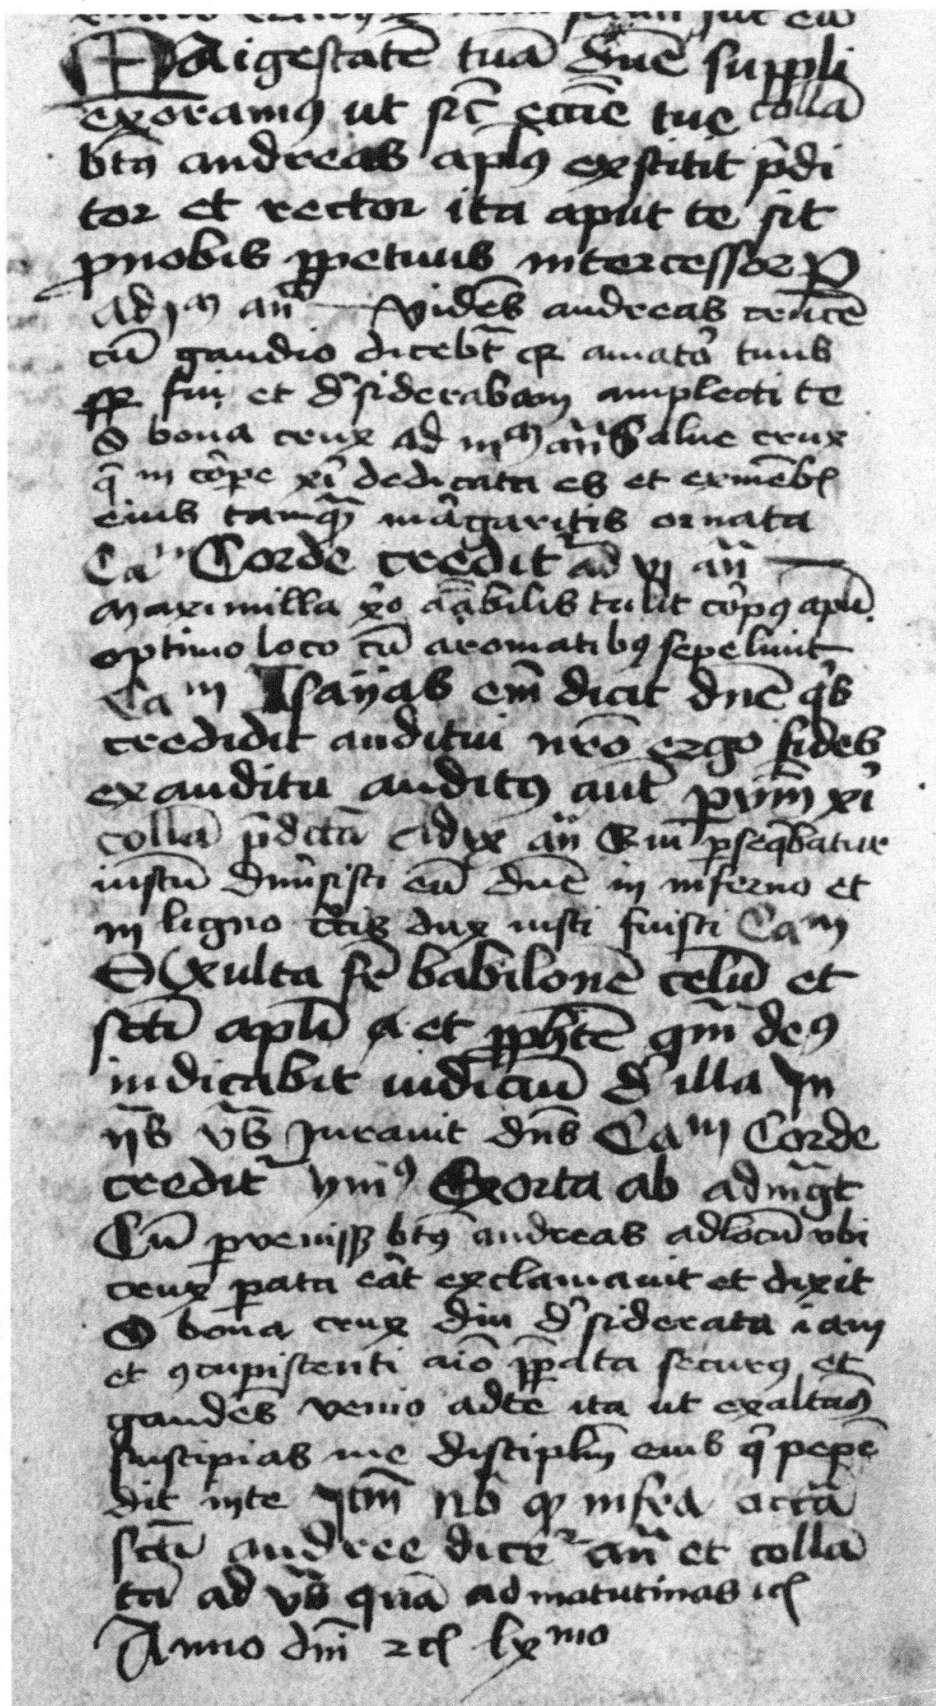 Maigestatē tuā dn̄e suppli
exoramꝰ ut sic̄ eccīe tue collā
btꝰ andreas apl̄ꝰ exstitit p̄di
tor et rector ita aput te sit
pnobis ꝑpetuus intercessor ꝑ
ad jᵐ an̄ vidēs andreas crucē
cū gaudio diceb̄t qꝛ amator̄ tuus
sꝑ fui et d̄siderabam amplecti te
O bona crux ad iijᵐ an̄ Salue crux
q̄ in cōꝛpe xp̄i dedicata es et exmēbꝭ
eius tamq̄ȝ mārgaritis ornata
Caᵐ Corde creditᷣ ad vj an̄
Maximilla xp̄o āabilis tulit cōꝛpꝰ apl̄i
optimo loco cū aromatibꝰ sepeliuit
Caᵐ Isayas em̄ dicit dn̄e q̇s
credidit auditui nr̄o ergo fides
exauditu auditꝰ aut̄ ꝑ vm̄ xp̄i
collā p̄dcta Adix an̄ Qui ꝑseq̄batur
iustū dim̄sisti eū dn̄e in inferno et
in ligno cr̄cis dux iusti fuisti Caᵐ
Exulta sr̄ babilonē celū et
scti apl̄i et ꝓph̄te qm̄ deꝰ
iudicabit iudiciū d̄ illa In
ijs vs̄ Jurauit dn̄s Caᵐ Corde
creditᷣ ymꝰ Exorta ab ad mg̃t
Cū ꝑuenissȝ btꝰ andreas adlocū vbi
crux ꝑata eāt exclamauit et dixit
O bona crux diu d̄siderata iam
et ꝯcupiscenti aīo ꝑꝑata securꝰ et
gaudēs venio adte ita ut exaltās
suscipias me discipl̄m eius q̄ pepē
dit inte Itm̄ nō qꝫ infra octā
scti andree dicetᷣ an̄ et collā
tā ad vs̄ quā ad matutinas icꝭ
Anno dm̄ 2cꝭ lxᵐᵒ